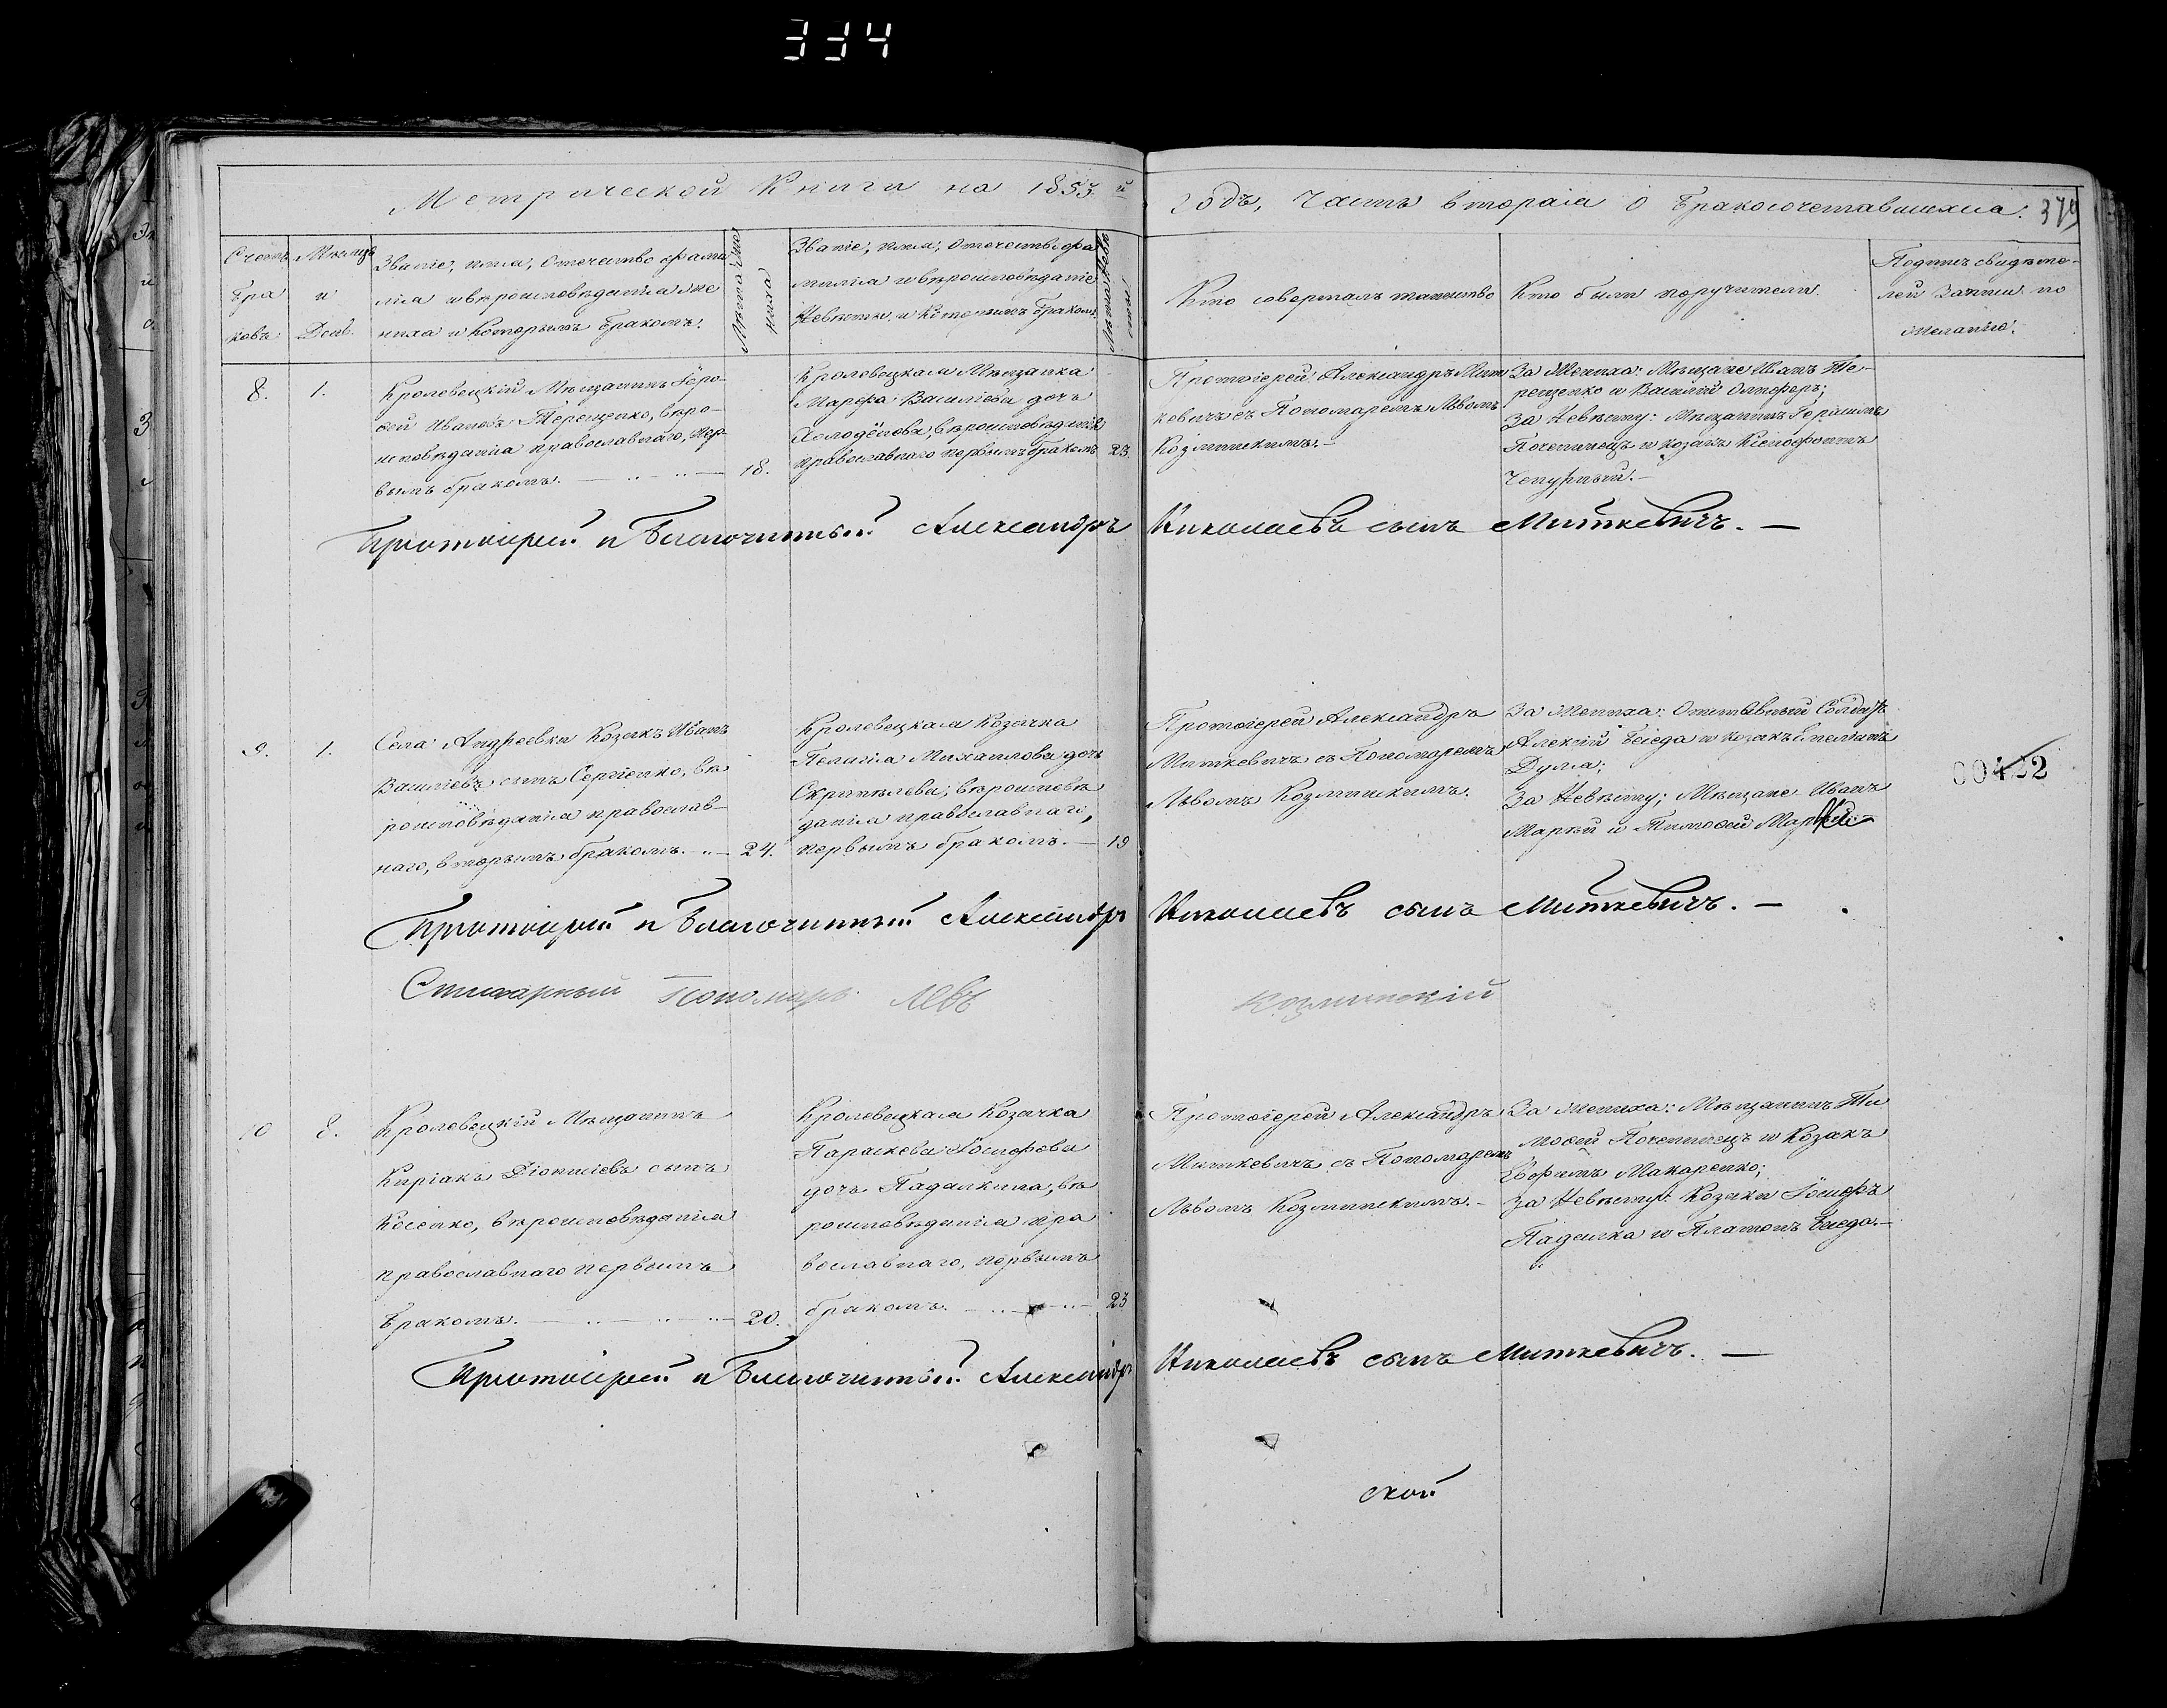 334
Метрической Книги на 1853 й годъ, Часть вторая о бракосочетавшихся.
379
Счетъ бра ковъ.
Мѣсяцъ и День.
Званіе, имя, отечество фами
лія и вѣроисповѣданія же
ниха и которымъ бракомъ.
Лѣта же
ниха
Званіе, имя, отечество, фа
милія и вѣроисповѣданіе
невѣсты и которымъ бракомъ.
Лѣта невѣ
сты
Кто совершалъ таинство
Кто были поручители.
Подпись свидѣте-
лей записи по
желанію.
8.
1.
Кролевецкій Мѣщанинъ
Ивановъ Терещенко, вѣро-
исповѣданія православнаго, пер-
вымъ бракомъ.
18.
Кролевецкая Мѣщанка
Марфа Васильева дочь
вѣроисповѣданія
православнаго первымъ бракомъ
23.
Протоіерей Александръ Мит
кевичъ съ Пономаремъ Львомъ
Козминскимъ.-
За Жениха: Мѣщане Иванъ Те-
рещенко и Василій
За Невѣсту: Мѣщанинъ Герасимъ
и козакъ Ксенофонтъ
Чепурный.-
Протоіерей и Благочинный Александръ Николаевъ сынъ Миткевичъ. —
9.
1.
Села Андреевки Козакъ Иванъ
Васильевъ сынъ Сергіенко, вѣ
роисповѣданія православ-
наго, вторымъ бракомъ.
24.
Кролевецкая Козачка
Пелагія Михаилова дочь
вѣроисповѣ
данія православнаго,
первымъ бракомъ.
19
Протоіерей Александръ
Миткевичъ съ Пономаремъ
Львомъ Козминскимъ.
За Жениха: Отставный Солдатъ
Алексій и козакъ
Дума;
За Невѣсту; Мѣщане Иванъ
и Тимофей
00422
Протоіерей и Благочинный Александръ Николаевъ сынъ Миткевичъ. —
Стихарный Пономарь Левъ Козминскій
10
8.
Кролевецкій Мѣщанинъ
Киріакъ Діонисіевъ сынъ
Косенко, вѣроисповѣданія
православнаго первымъ
бракомъ.
20.
Кролевецкая Козачка
Параскева Іосифова
дочь вѣ
роисповѣданія пра
вославнаго, первымъ
бракомъ.
23
Протоіерей Александръ
Миткевичъ съ Пономаремъ
Львомъ Козминскимъ.-
За Жениха: Мѣщанинъ Ти
мофей и Козакъ
Макаренко;
За Невѣсту: Козаки Іосифъ
Падалка и Платонъ
Протоіерей и Благочинный Александръ Николаевъ сынъ Миткевичъ. —
ской